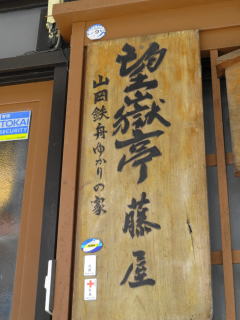 望嶽亭 藤屋
山岡鉄舟ゆかりの家
TOKAI
SECURITY